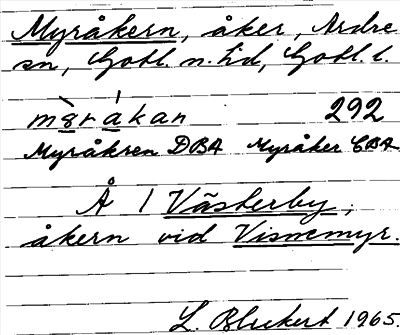 Myråkern, åker, Ardre
sn, Gotl. n. hd, Gotl. l.
m8råkan 292
Myråkren DBA Myråker EBA
Å 1 Västerby;
åkern vid Visnemyr.
L. Bleckert 1965.